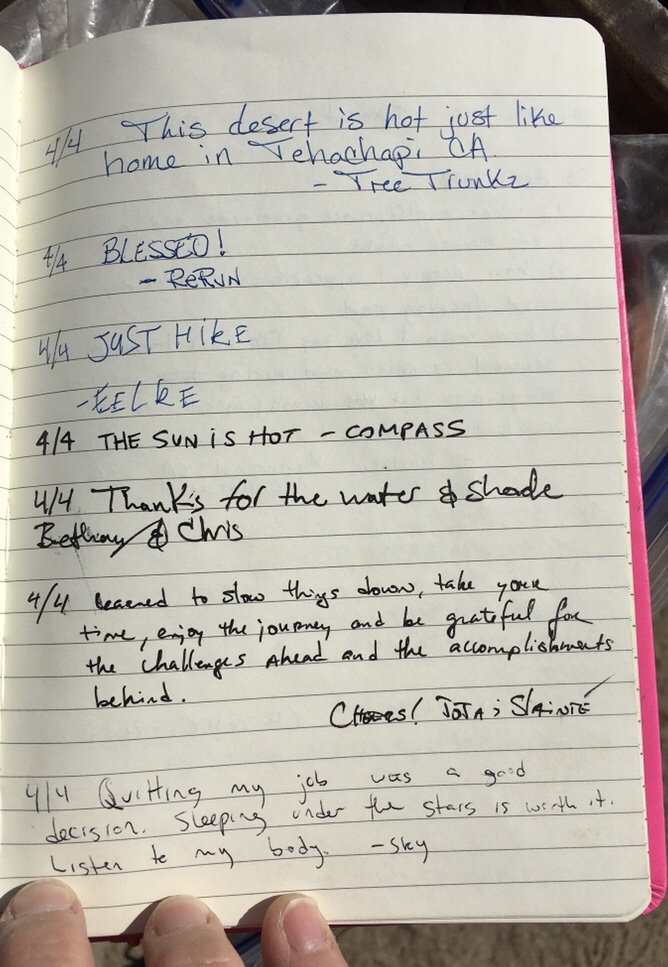 4/4 This desert is hot just like
home in Tehachapi CA
- Tree Trunkz
4/4 BLESSED!
- ReRUN
4/4 JUST HiKE
-EELKE
4/4 THE SUN iS HOT - COMPASS
4/4 Thanks for the water & Shade
Bethany & Chris
4/4 Learned to slow things down, take your
time, enjoy the journey and be grateful for
the challenges Ahead and the accomplishments
behind.
Cheers!
4/4 Quitting my job was a good
decision. Sleeping under the stars is worth it.
Listen to my body. - Sky